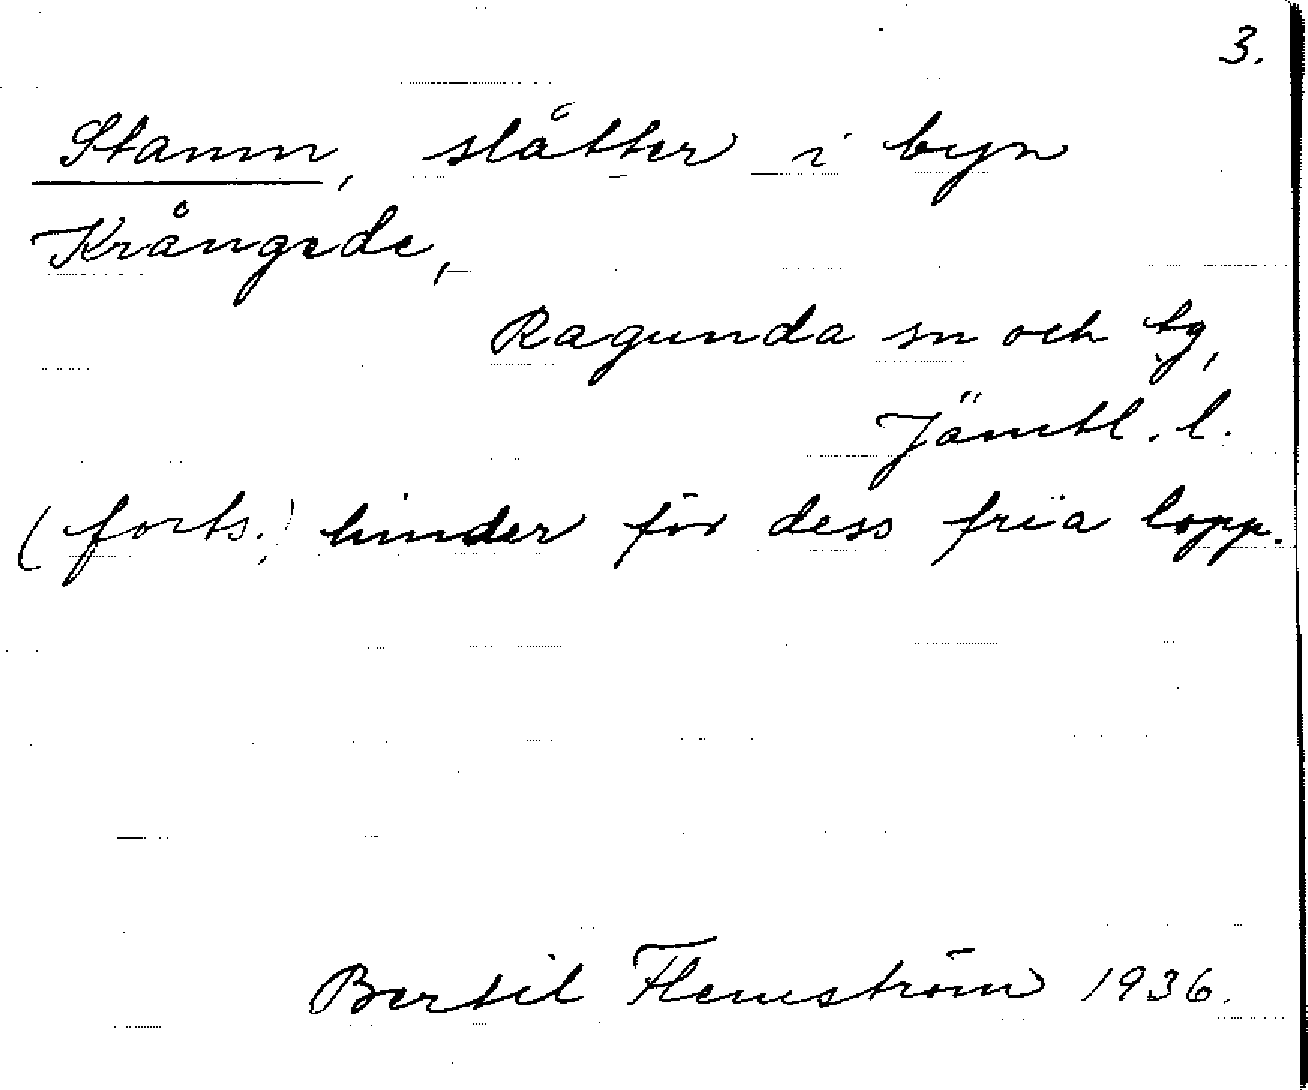 3.
Stamm, slåtter i byn
Krångede,
Ragunda sn och tg,
Jämtl. l.
(forts.) hinder för dess fria lopp.
Bertil Flemström 1936.